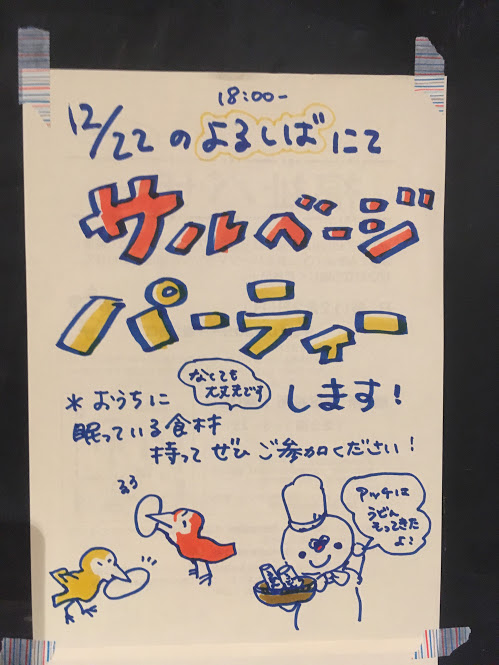 18:00-
12/22のよるしばにて
サルベージ
パーティー
なんでも
大丈夫です
します!
*おうちに
眠っている食材
持って ぜひ ご参加ください!
アッチは
うどん
もってきた
よ!